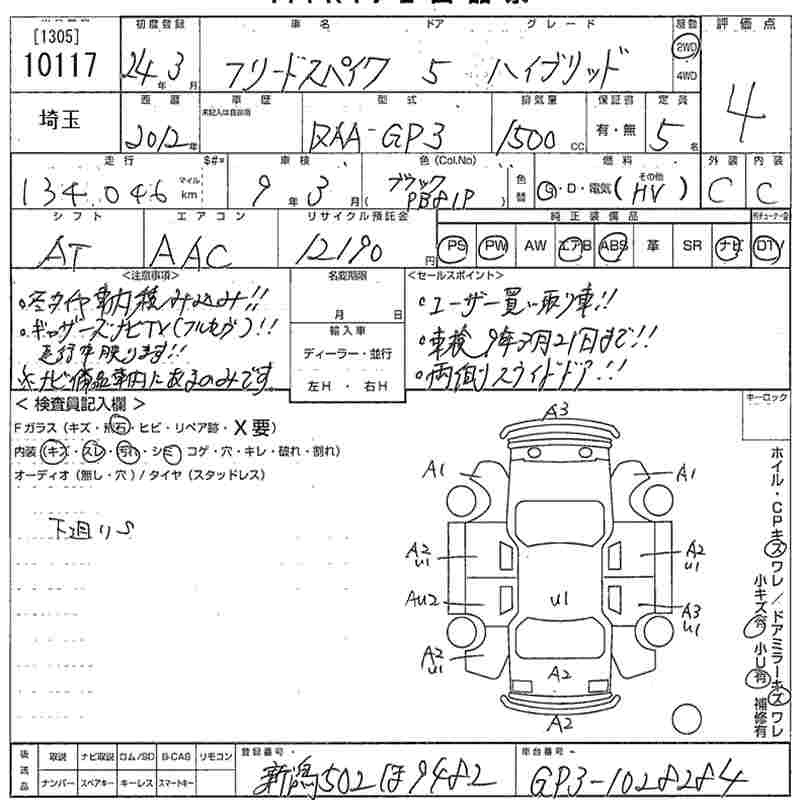 [1305]
10117
初度登録
24年 3月
車名
フリードスパイク
ドア
5
グレード
ハイブリッド
駆動
2WD
4WD
評価点
4
埼玉
西暦
2012年
車歴
未記入は自家用
型式
DAA-GP3
排気量
1500 CC
保証書
有・無
定員
5名
走行
134,046
マイル
km
$#*
車検
9年 3月
色(Col,No)
ブラック
PB81P
色替
燃料
G・D・電気(その他 HV)
外装
C
内装
C
シフト
AT
エアコン
AAC
リサイクル預託金
12190円
純正装備品
PS PW AW エアB ABS 革 SR ナビ TV
<注意事項>
・冬タイヤ車内積み込み!!
・ギャザーズナビTV(フルセグ)!!
走行中映ります!!
※ナビ備品車内にあるのみです
名変期限
月 日
輸入車
ディーラー・並行
左H ・ 右H
<セールスポイント>
・ユーザー買い取り車!!
・車検9年3月21日まで!!
・両側スライドドア!!
< 検査員記入欄 >
Fガラス(キズ・飛石・ヒビ・リペア跡・X要)
内装(キズ・スレ・汚れ・シミ コゲ・穴・キレ・破れ・割れ)
オーディオ(無し・穴)/タイヤ(スタッドレス)
下廻りS
キーロック
ホイル・CPキズ ワレ/ドアミラーキズ ワレ
小キズ有 小U有 補修有
A3
A1
A1
A2
U1
A2
U1
AU2
U1
A3
U1
A2
U1
A2
A2
後送品
取説 ナビ取説 ロム/SD B-CAS リモコン
ナンバー スペアキー キーレス スマートキー
登録番号
新潟502ほ9482
車台番号
GP3-1028284